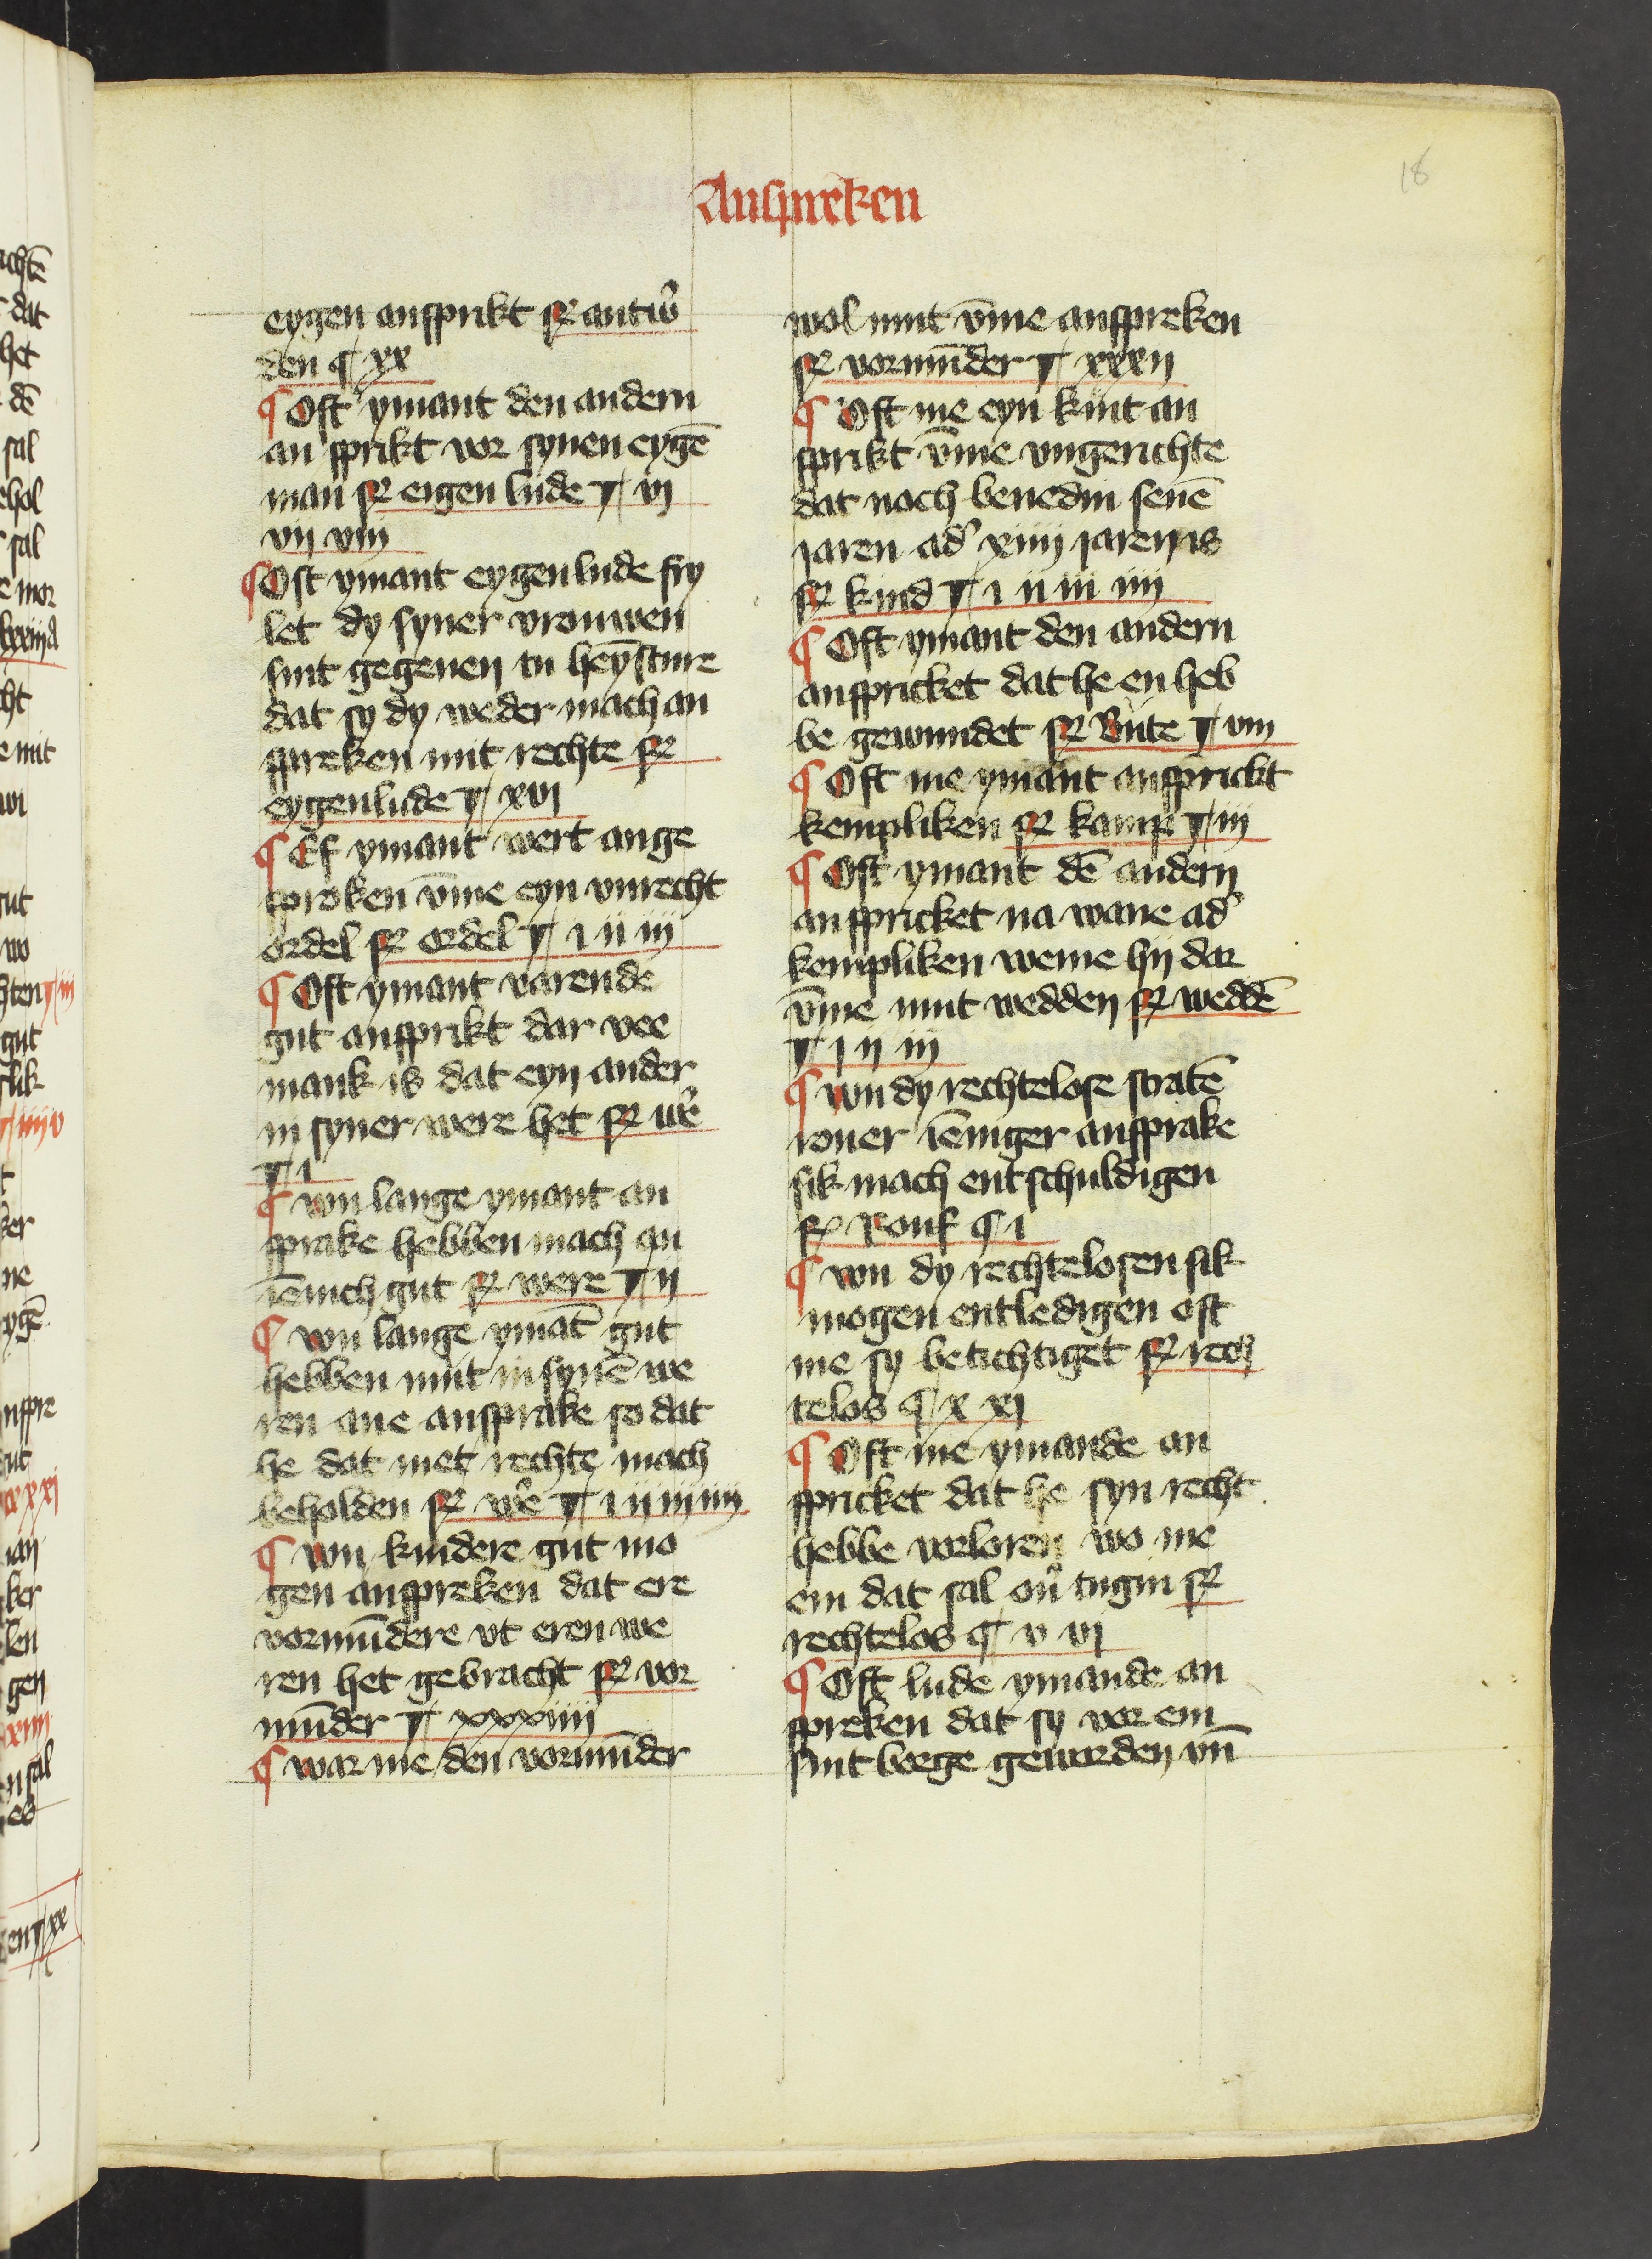 18
Anspreken
eygen ansprikt sꝛ antwᵒ
den ¶ xx
¶ Oft ymant den andern
an sprikt vor synen eygē
man sꝛ eigen lude ¶ vi
vii viii
¶ Oft ymant eygen lude fry
let dy syner vrouwen
sint gegeuen tu heystiure
dat sy dy weder mach an
spreken mit rechte sꝛ
eygenlude ¶ xvi
¶ Ef ymant wert ange
sproken v̄me eyn vnrecht
ordel sꝛ ordel ¶ i ii iii
¶ Oft ymant varende
gut ansprikt dar vee
mank is dat eyn ander
in syner were het sꝛ wͤe
¶ i
¶ wu lange ymant an
sprake hebben mach an
iēnich gut sꝛ were ¶ ii
¶ wu lange ymāt gut
hebben mut in synē we
ren ane ansprake so dat
he dat met rechte mach
beholden sꝛ wͤe ¶ i ii iii iiii
¶ wu kindere gut mo
gen anspreken dat ere
vormūdere vt eren we
ren het gebracht sꝛ vor
mūder ¶ xxxiiii
¶ war me den vormūder
wol mut v̄me anspreken
sꝛ vormūder ¶ xxxii
¶ Oft me eyn kint an
sprikt v̄me vngerichte
dat noch benedin seuē
iaren adᵒ xiiii iaren is
sꝛ kind ¶ i ii iii iiii
¶ Oft ymant den andern
anspricket dat he en heb
be gewundet sꝛ Bute ¶ viii
¶ Oft me ymant ansprickt
kempliken sꝛ kamp ¶ iii
¶ Oft ymant dē andern
anspricket na wane adᵒ
kempliken weme hij dar
v̄me mut wedden sꝛ weddē
¶ i ii iii
¶ wu dy rechtelose stratē
rouer iēniger ansprake
sik mach entschuldigen
sꝛ Rouf ¶ i
¶ wu dy rechtelosen sik
mogen entledigen oft
me sy betichtiget sꝛ rech
telos ¶ x xi
¶ Oft me ymande an
spricket dat he syn recht
hebbe vorloren wo me
em dat sal ouͦ tugin sꝛ
rechtelos ¶ v vi
¶ Oft lude ymande an
spreken dat sy vor em
sint borge geworden vn̄